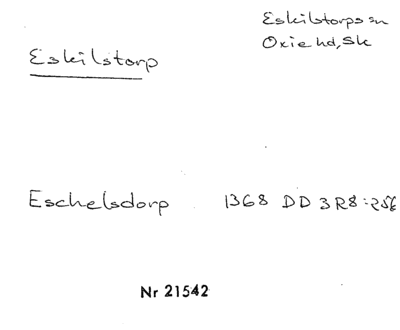 Eskilstorps sn
Oxie hd, Sk
Eskilstorp
Eschelsdorp 1368 DD 3R8:256
Nr 21542